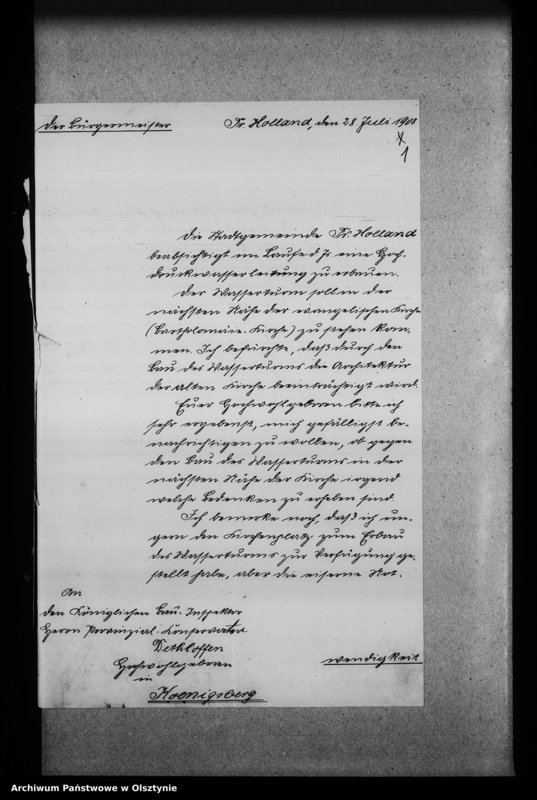 Der Bürgermeister
Pr. Holland, den 28 Juli 1908
1
Die Stadtgemeinde Pr. Holland
beabsichtigt im Laufe d Js. eine Hoch-
druckwasserleitung zu erbauen.
Der Wasserturm soll in der
nächsten Nähe der evangelischen Kirche
(Bartholomäi-Kirche) zu stehen kom-
men. Ich befürchte, daß durch den
Bau des Wasserturms die Architektur
der alten Kirche beeinträchtigt wird.
Euer Hochwohlgeboren bitte ich
sehr ergebenst, mich gefälligst be-
nachrichtigen zu wollen, ob gegen
den Bau des Wasserturms in der
nächsten Nähe der Kirche irgend
welche Bedenken zu erheben sind.
Ich bemerke noch, daß ich un-
gern den Kirchenplatz zum Erbau
des Wasserturms zur Verfügung ge-
stellt habe, aber die eiserne Not-
wendigkeit
An
den Königlichen Bau-Inspektor
Herrn Provinzial-Konservator
Dethloffen
Hochwohlgeboren
in
Koenigsberg
Archiwum Państwowe w Olsztynie